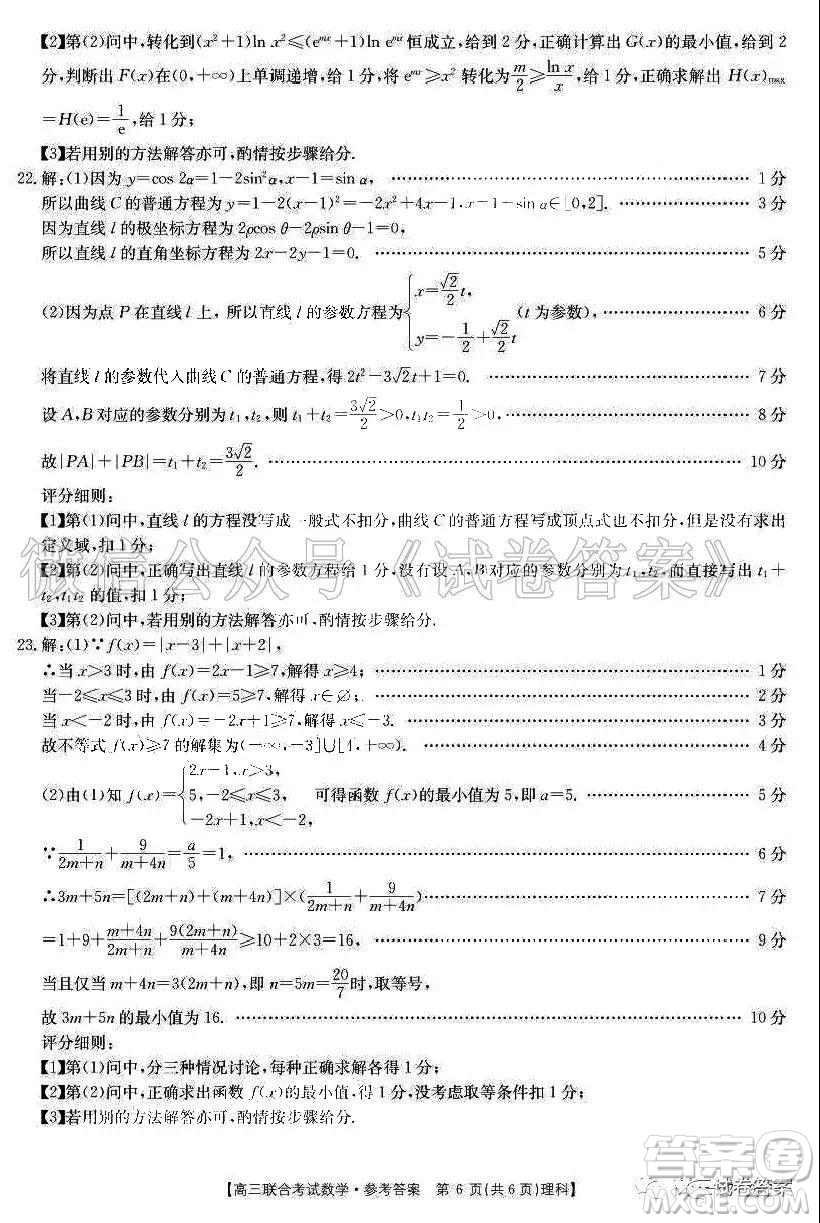 【2】第(2)问中,转化到(x²+1)ln x²≤(eᵐˣ+1)ln eᵐˣ恒成立,给到 2 分,正确计算出 G(x)的最小值,给到 2
分,判断出 F(x)在(0,+∞)上单调递增,给 1 分,将 eᵐˣ≥x² 转化为 m/2≥ln x/x,给 1 分,正确求解出 H(x)max
=H(e)=1/e,给 1 分;
【3】若用别的方法解答亦可,酌情按步骤给分.
22.解:(1)因为 y=cos 2α=1-2sin²α,x-1=sin α, ……………… 1 分
所以曲线 C 的普通方程为 y=1-2(x-1)²=-2x²+4x-1,x=1+sin α∈[0,2]. ……………… 3 分
因为直线 l 的极坐标方程为 2ρcos θ-2ρsin θ-1=0,
所以直线 l 的直角坐标方程为 2x-2y-1=0. ……………… 5 分
(2)因为点 P 在直线 l 上,所以直线 l 的参数方程为{x=√2/2 t, y=-1/2+√2/2 t (t 为参数), ……………… 6 分
将直线 l 的参数代入曲线 C 的普通方程,得 2t²-3√2t+1=0. ……………… 7 分
设 A,B 对应的参数分别为 t₁,t₂,则 t₁+t₂=3√2/2>0,t₁t₂=1/2>0, ……………… 8 分
故|PA|+|PB|=t₁+t₂=3√2/2. ……………… 10 分
评分细则:
【1】第(1)问中,直线 l 的方程没写成一般式不扣分,曲线 C 的普通方程写成顶点式也不扣分,但是没有求出
定义域,扣 1 分;
【2】第(2)问中,正确写出直线 l 的参数方程给 1 分,没有设 A,B 对应的参数分别为 t₁,t₂,而直接写出 t₁+
t₂,t₁t₂ 的值,扣 1 分;
【3】第(2)问中,若用别的方法解答亦可,酌情按步骤给分.
23.解:(1)∵f(x)=|x-3|+|x+2|,
∴当 x>3 时,由 f(x)=2x-1≥7,解得 x≥4; ……………… 1 分
当-2≤x≤3 时,由 f(x)=5≥7,解得 x∈∅; ……………… 2 分
当 x<-2 时,由 f(x)=-2x+1≥7,解得 x≤-3. ……………… 3 分
故不等式 f(x)≥7 的解集为(-∞,-3]∪[4,+∞). ……………… 4 分
(2)由(1)知 f(x)={2x-1,x>3, 5,-2≤x≤3, -2x+1,x<-2, 可得函数 f(x)的最小值为 5,即 a=5. ……………… 5 分
∵1/(2m+n)+9/(m+4n)=a/5=1, ……………… 6 分
∴3m+5n=[(2m+n)+(m+4n)]×(1/(2m+n)+9/(m+4n) ……………… 7 分
=1+9+(m+4n)/(2m+n)+9(2m+n)/(m+4n)≥10+2×3=16, ……………… 9 分
当且仅当 m+4n=3(2m+n),即 n=5m=20/7时,取等号,
故 3m+5n 的最小值为 16. ……………… 10 分
评分细则:
【1】第(1)问中,分三种情况讨论,每种正确求解各得 1 分;
【2】第(2)问中,正确求出函数 f(x)的最小值,得 1 分,没考虑取等条件扣 1 分;
【3】若用别的方法解答亦可,酌情按步骤给分.
【高三联合考试数学·参考答案 第 6 页(共 6 页)理科】
微信公众号《试卷答案》
答案圈
试卷答案
MXQE.COM